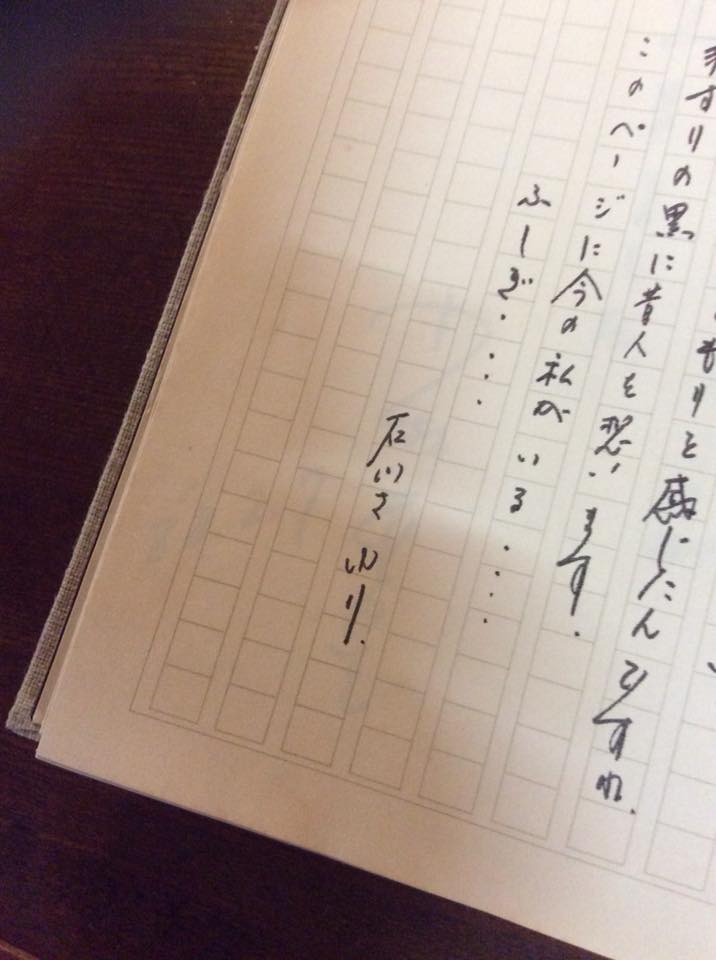 もりと感じたんですね.
すりの黒に昔人を想います.
このページに今の私がいる・・・・
ふしぎ・・・・
石川さゆり.